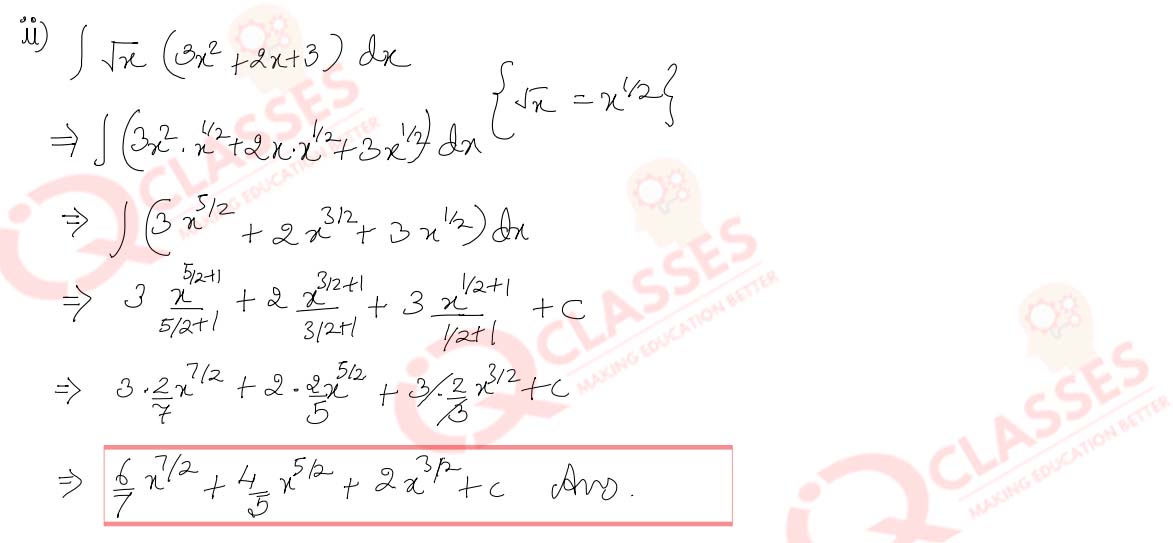 ii) ∫ √x (3x² + 2x + 3) dx
{√x = x^1/2}
⇒ ∫ (3x² · x^1/2 + 2x · x^1/2 + 3x^1/2) dx
⇒ ∫ (3 x^5/2 + 2 x^3/2 + 3 x^1/2) dx
⇒ 3 x^5/2+1 / 5/2+1 + 2 x^3/2+1 / 3/2+1 + 3 x^1/2+1 / 1/2+1 + c
⇒ 3 · 2/7 x^7/2 + 2 · 2/5 x^5/2 + 3 · 2/3 x^3/2 + c
⇒ 6/7 x^7/2 + 4/5 x^5/2 + 2x^3/2 + c Ans.
IQ CLASSES
MAKING EDUCATION BETTER
IQ CLASSES
MAKING EDUCATION BETTER
IQ CLASSES
MAKING EDUCATION BETTER